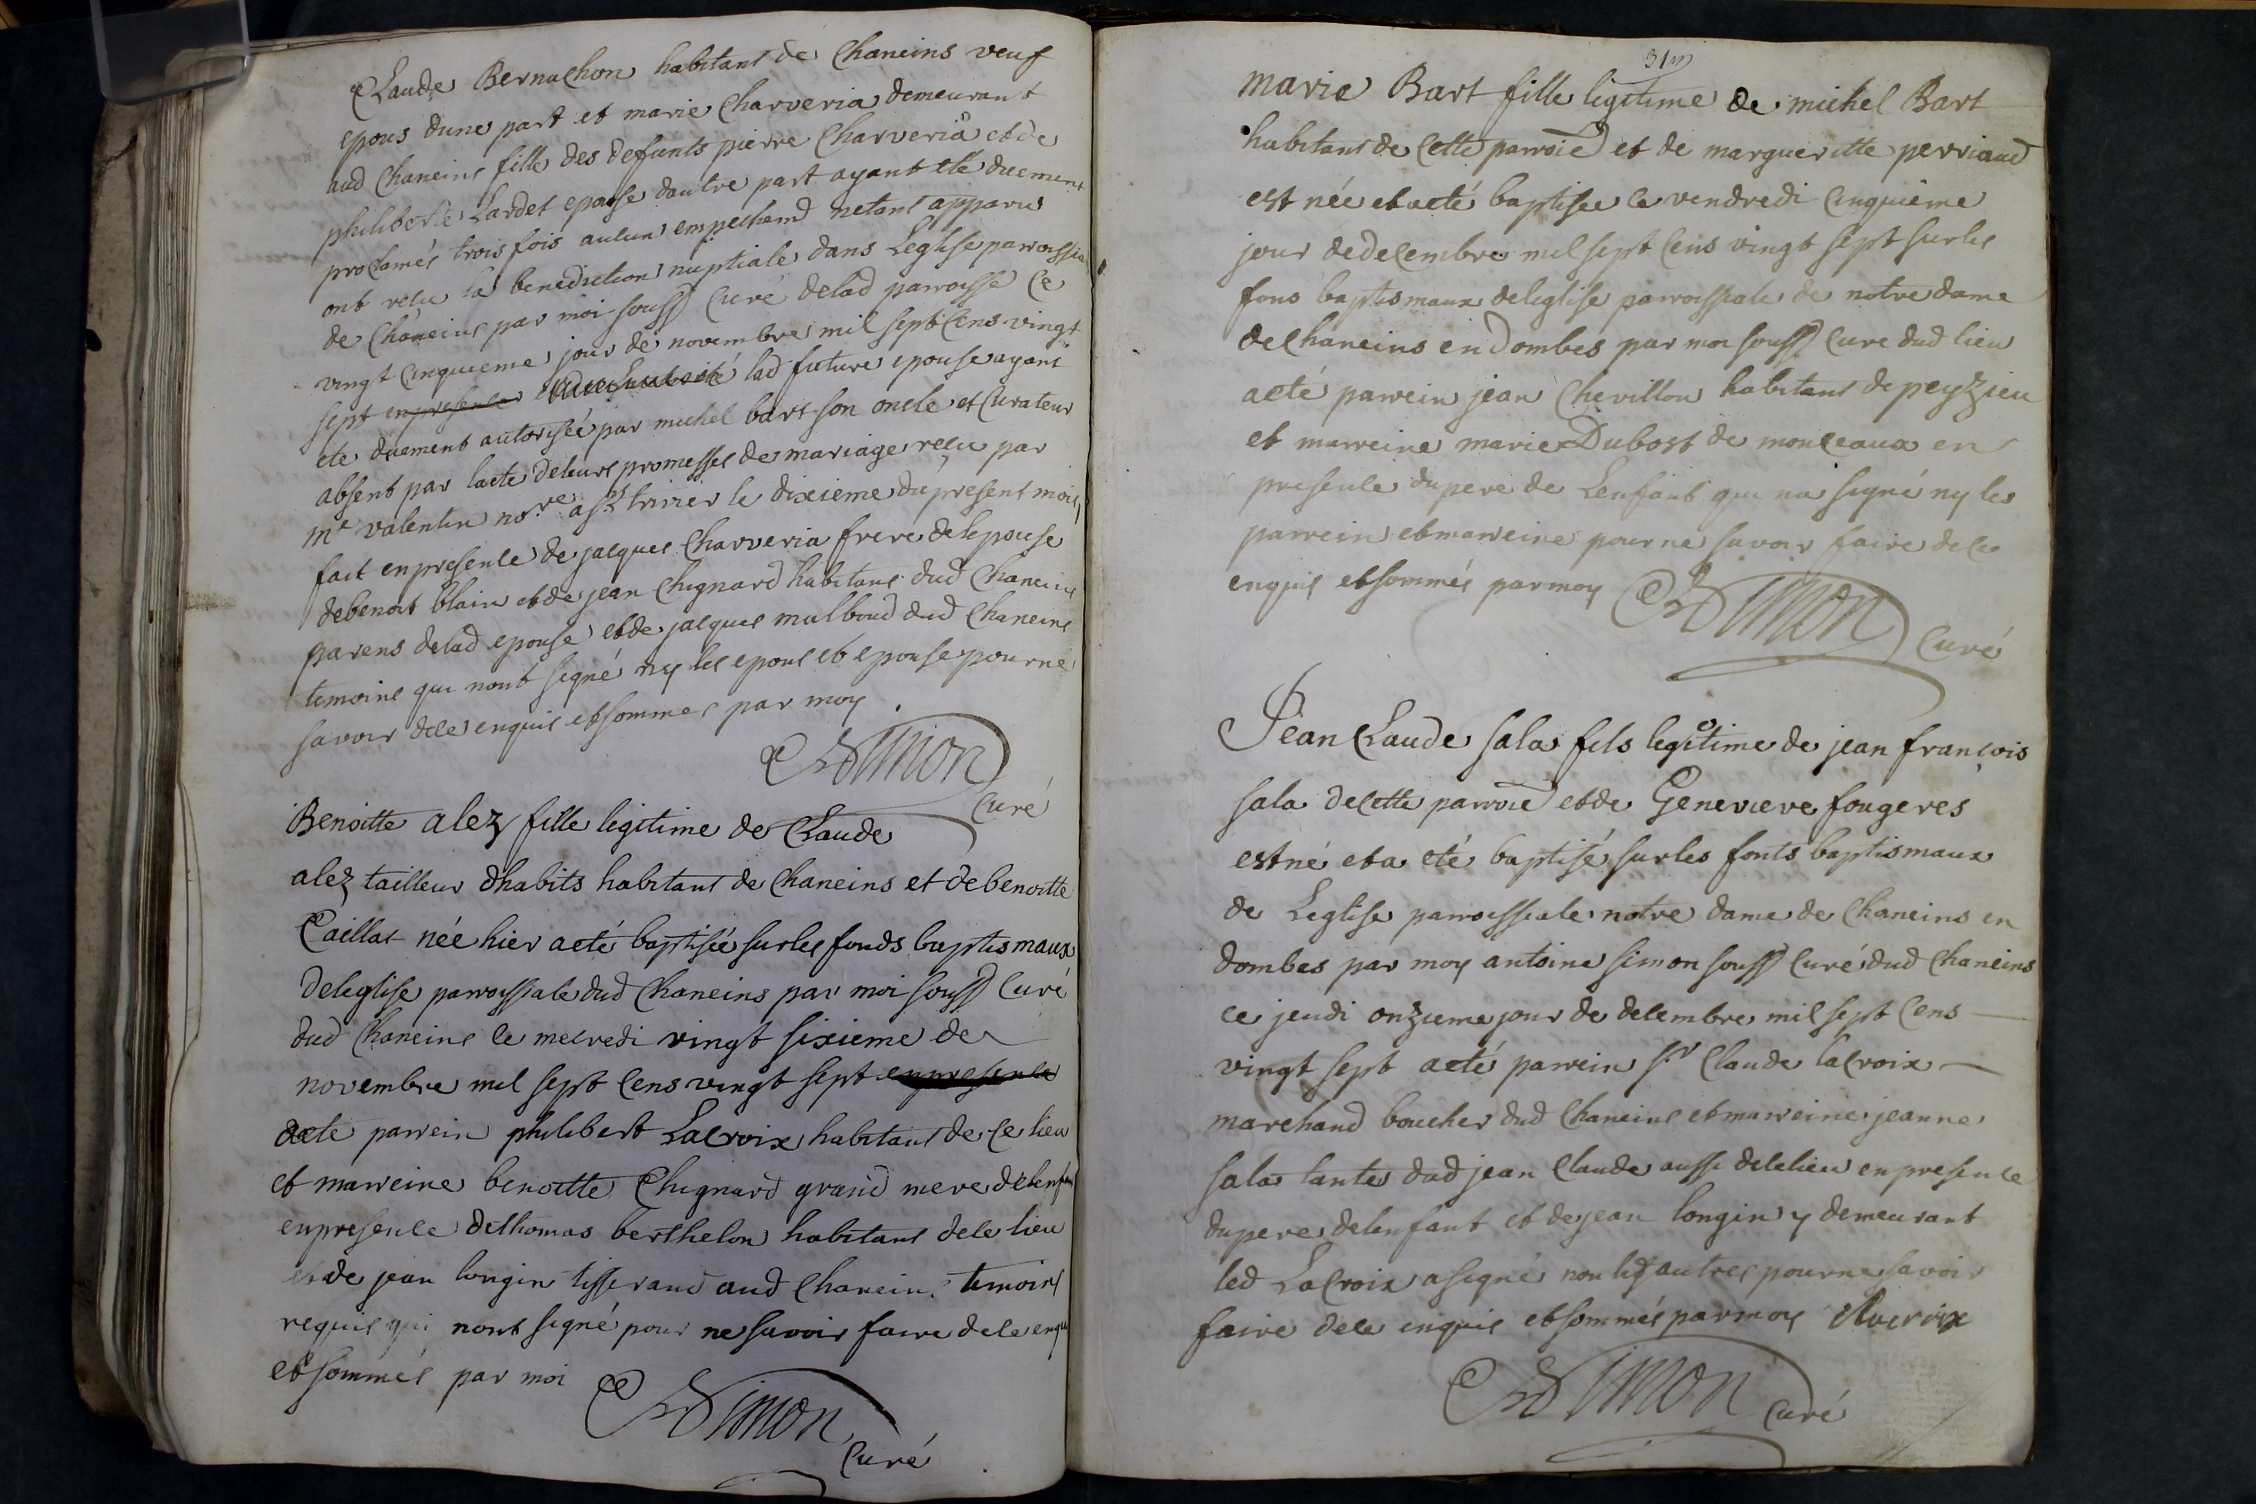 Claude Bernachon habitant de Chaneins veuf
epous dune part et marie Charveria demeurant
aud Chaneins fille des defunts pierre Charveria et de
philiberte Lardet epouse dautre part ayant ete duement
proclamés trois fois aucun empechemd netant apparu
ont reçu la benediction nuptiale dans Leglise parroissia
de Chaneins par moi souss curé delad parroisse Ce
vingt cinquieme jour de novembre mil sept Cens vingt
sept en presence lad future epouse ayant
ete duement autorisée par michel bart son oncle et Curateur
absent par lacte de leurs promesses de mariage reçu par
Me valentin nore a st trivier le dixieme du present mois
fait en presence de jacques Charveria frere de lepouse
de benoit blain et de jean Chignard habitans dud Chaneins
parens delad epouse et de jacques mulboud dud Chaneins
temoins qui nont signé ny les epous et epouse pour ne
savoir dece enquis et sommes par moy
Simon
Curé
Benoitte alez fille legitime de Claude
alez tailleur dhabits habitant de Chaneins et de benoitte
Caillat née hier a eté baptisée sur les fonds baptismaux
de leglise parroissiale dud Chaneins par moi souss Curé
dud Chaneins le mecredi vingt sixieme de
novembre mil sept Cens vingt sept en presence
a ete parrein philibert Lacroix habitant de Ce lieu
et marreine benoitte Chignard grand mere de lenfan
en presence de thomas berthelon habitant de ce lieu
et de jean longin tisserand aud Chaneins temoins
requis qui nont signé pour ne savoir faire de ce enqu
et sommés par moi
Simon
Curé
31
marie Bart fille legitime de michel Bart
habitant de Cette parroie et de margueritte perriaud
est née et a eté baptisée le vendredi Cinquieme
jour de decembre mil sept Cens vingt sept sur les
fons baptismaux de leglise parroissiale de notre dame
de Chaneins en Dombes par moi souss Curé dud lieu
a eté parrein jean Chevillon habitant de peyzieu
et marreine marie Dubost de monceaux en
presence du pere de Lenfant qui na signé ny les
parrein et marreine pour ne savoir faire de ce
enquis et sommés par moy Simon
Curé
Jean Claude sala fils legitime de jean françois
sala de cette parroie et de Genevieve fougeres
est né et a eté baptisé sur les fonts baptismaux
de Leglise parroissiale notre dame de Chaneins en
dombes par moy antoine simon souss Curé dud Chaneins
ce jeudi onzieme jour de decembre mil sept Cens
vingt sept a eté parrein sr Claude lacroix
marchand boucher dud Chaneins et marreine jeanne
sala tante dud jean Claude aussi de ce lieu en presence
du pere de lenfant et de jean longin y demeurant
led Lacroix a signé non les autres pour ne savoir
faire de ce enquis et sommés par moy Clacroix
Simon
Curé